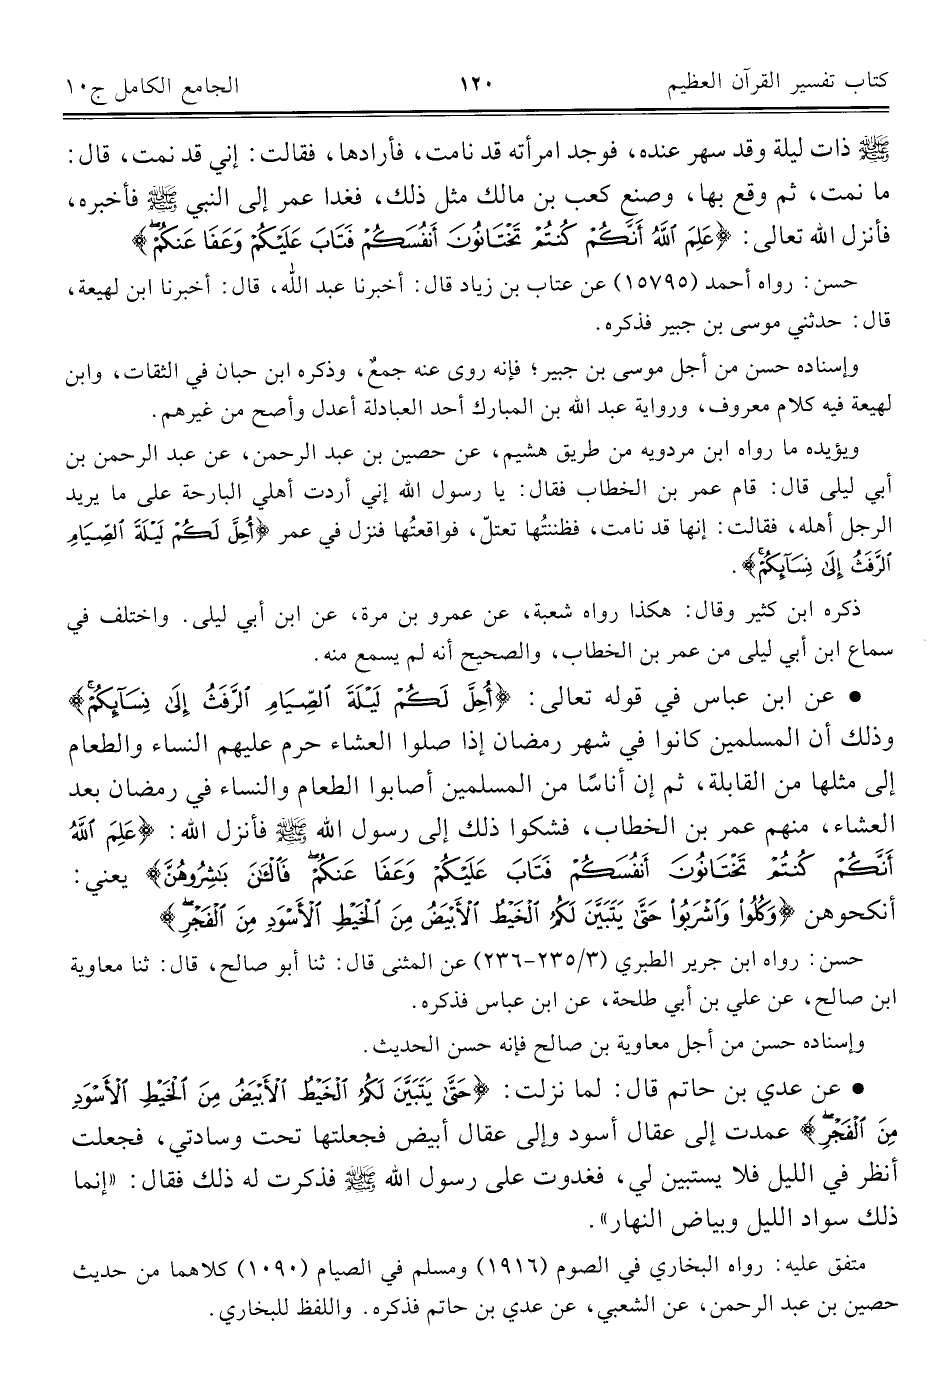 كتاب تفسير القرآن العظيم ١٢٠ الجامع الكامل ج١٠
ﷺ ذات ليلة وقد سهر عنده، فوجد امرأته قد نامت، فأرادها، فقالت: إني قد نمت، قال:
ما نمت، ثم وقع بها، وصنع كعب بن مالك مثل ذلك، فغدا عمر إلى النبي ﷺ فأخبره،
فأنزل الله تعالى: ﴿عَلِمَ ٱللَّهُ أَنَّكُمْ كُنتُمْ تَخْتَانُونَ أَنفُسَكُمْ فَتَابَ عَلَيْكُمْ وَعَفَا عَنكُمْۖ﴾
حسن: رواه أحمد (١٥٧٩٥) عن عتاب بن زياد قال: أخبرنا عبد الله، قال: أخبرنا ابن لهيعة،
قال: حدثني موسى بن جبير فذكره.
وإسناده حسن من أجل موسى بن جبير؛ فإنه روى عنه جمعٌ، وذكره ابن حبان في الثقات، وابن
لهيعة فيه كلام معروف، ورواية عبد الله بن المبارك أحد العبادلة أعدل وأصح من غيرهم.
ويؤيده ما رواه ابن مردويه من طريق هشيم، عن حصين بن عبد الرحمن، عن عبد الرحمن بن
أبي ليلى قال: قام عمر بن الخطاب فقال: يا رسول الله إني أردت أهلي البارحة على ما يريد
الرجل أهله، فقالت: إنها قد نامت، فظننتُها تعتلّ، فواقعتُها فنزل في عمر ﴿أُحِلَّ لَكُمْ لَيْلَةَ ٱلصِّيَامِ
ٱلرَّفَثُ إِلَىٰ نِسَآئِكُمْۚ﴾.
ذكره ابن كثير وقال: هكذا رواه شعبة، عن عمرو بن مرة، عن ابن أبي ليلى. واختلف في
سماع ابن أبي ليلى من عمر بن الخطاب، والصحيح أنه لم يسمع منه.
• عن ابن عباس في قوله تعالى: ﴿أُحِلَّ لَكُمْ لَيْلَةَ ٱلصِّيَامِ ٱلرَّفَثُ إِلَىٰ نِسَآئِكُمْۚ﴾
وذلك أن المسلمين كانوا في شهر رمضان إذا صلوا العشاء حرم عليهم النساء والطعام
إلى مثلها من القابلة، ثم إن أناسًا من المسلمين أصابوا الطعام والنساء في رمضان بعد
العشاء، منهم عمر بن الخطاب، فشكوا ذلك إلى رسول الله ﷺ فأنزل الله: ﴿عَلِمَ ٱللَّهُ
أَنَّكُمْ كُنتُمْ تَخْتَانُونَ أَنفُسَكُمْ فَتَابَ عَلَيْكُمْ وَعَفَا عَنكُمْۖ فَٱلْـَٰٔنَ بَـٰشِرُوهُنَّ﴾ يعني:
أنكحوهن ﴿وَكُلُوا۟ وَٱشْرَبُوا۟ حَتَّىٰ يَتَبَيَّنَ لَكُمُ ٱلْخَيْطُ ٱلْأَبْيَضُ مِنَ ٱلْخَيْطِ ٱلْأَسْوَدِ مِنَ ٱلْفَجْرِۖ﴾
حسن: رواه ابن جرير الطبري (٢٣٥/٣-٢٣٦) عن المثنى قال: ثنا أبو صالح، قال: ثنا معاوية
ابن صالح، عن علي بن أبي طلحة، عن ابن عباس فذكره.
وإسناده حسن من أجل معاوية بن صالح فإنه حسن الحديث.
• عن عدي بن حاتم قال: لما نزلت: ﴿حَتَّىٰ يَتَبَيَّنَ لَكُمُ ٱلْخَيْطُ ٱلْأَبْيَضُ مِنَ ٱلْخَيْطِ ٱلْأَسْوَدِ
مِنَ ٱلْفَجْرِۖ﴾ عمدت إلى عقال أسود وإلى عقال أبيض فجعلتها تحت وسادتي، فجعلت
أنظر في الليل فلا يستبين لي، فغدوت على رسول الله ﷺ فذكرت له ذلك فقال: «إنما
ذلك سواد الليل وبياض النهار».
متفق عليه: رواه البخاري في الصوم (١٩١٦) ومسلم في الصيام (١٠٩٠) كلاهما من حديث
حصين بن عبد الرحمن، عن الشعبي، عن عدي بن حاتم فذكره. واللفظ للبخاري.